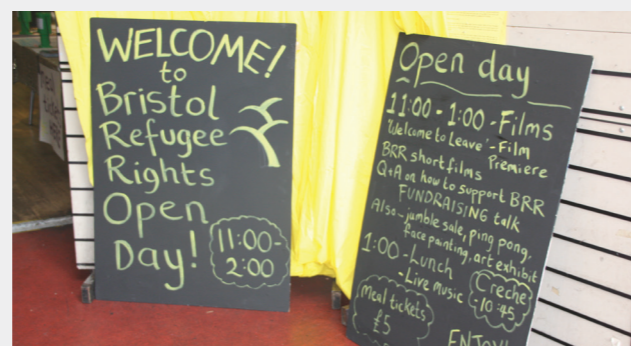 WELCOME!
to
Bristol
Refugee
Rights
Open
Day!
11:00-
2:00
Open day
11:00 - 1:00 - Films
'Welcome to Leave' - Film
Premiere
BRR short films
Q+A on how to support BRR
FUNDRAISING talk
Also - jumble sale, ping pong,
face painting, art exhibit
1:00 - Lunch
- Live Music
Creche
10:45
Meal tickets
£5
ENJOY!